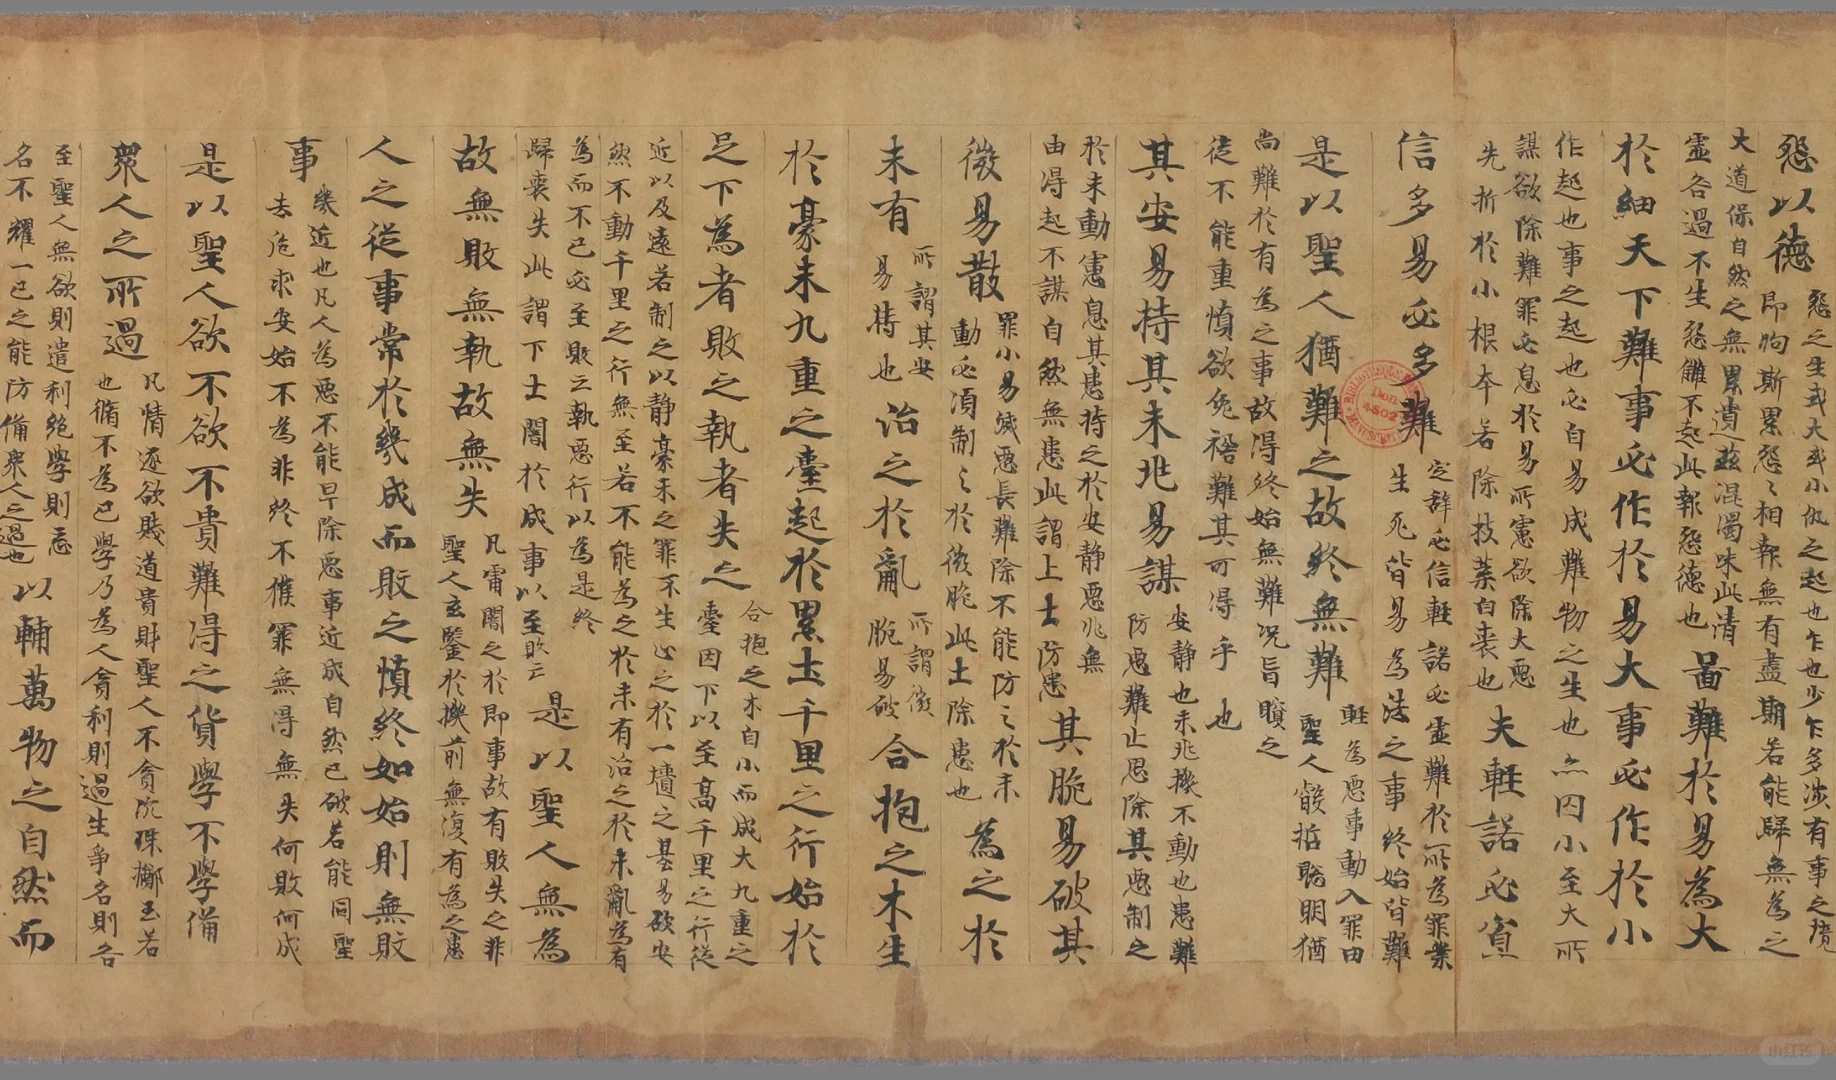 怨以德
怨之生或大或小仇之起也乍也少乍多涉有事之境
即殉斯累怨々相報無有盡期若能歸無為之
大道保自然之無累遺茲混濁味此清
虛各過不生怨讎不起此報怨德也
啚難於易為大
於細天下難事必作於易大事必作於小
作起也事之起也必自易成難物之生也亦因小至大所
謀欲除難罪必息於易所慮欲除大惡
先折於小根本若除枝葉自喪也
夫輕諾必寡
信多易必多難
定辞必信輕諾必虛難於所為罪業
生死皆易為法之事終始皆難
是以聖人猶難之故終無難
輕為惡事動入罪由
聖人叡哲聡明猶
尚難於有為之事故得終始無難況旨瞑之
徒不能重慎欲免禍難其可得乎也
其安易持其未兆易謀
安静也未兆機不動也患難
防惡難止思除其惡制之
於未動憲息其患持之於安静惡兆無
由得起不謀自然無患此謂上士防患
其脆易破其
微易散
罪小易滅惡長難除不能防之於未
動必須制之於微脆此士除患也
為之於
未有
所謂其安
易持也
治之於亂
所謂微
脆易破
合抱之木生
於豪末九重之臺起於累土千里之行始於
足下為者敗之執者失之
合抱之木自小而成大九重之
臺因下以至高千里之行從
近以及遠若制之以静豪末之罪不生止之於一樻之基易欲安
然不動千里之行無至若不能為之於未有治之於未亂為有
為而不已必至敗亡執惡行以為是終
歸喪失此謂下士闇於成事以至敗亡
是以聖人無為
故無敗無執故無失
凡庸闇之於即事故有敗失之非
聖人玄鑒於機前無復有為之患
人之從事常於幾成而敗之慎終如始則無敗
事
幾近也凡人為惡不能早除惡事近成自然已破若能同聖
去危求安始不為非終不催罪無得無失何敗何成
是以聖人欲不欲不貴難得之貨學不學備
衆人之所過
凡情逐欲賤道貴財聖人不貪沉珠擲玉若
也脩不為己學乃為人貪利則過生爭名則咎
至聖人無欲則遣利絶學則忘
名不耀一己之能防備衆人之過也
以輔萬物之自然而
Don
4502